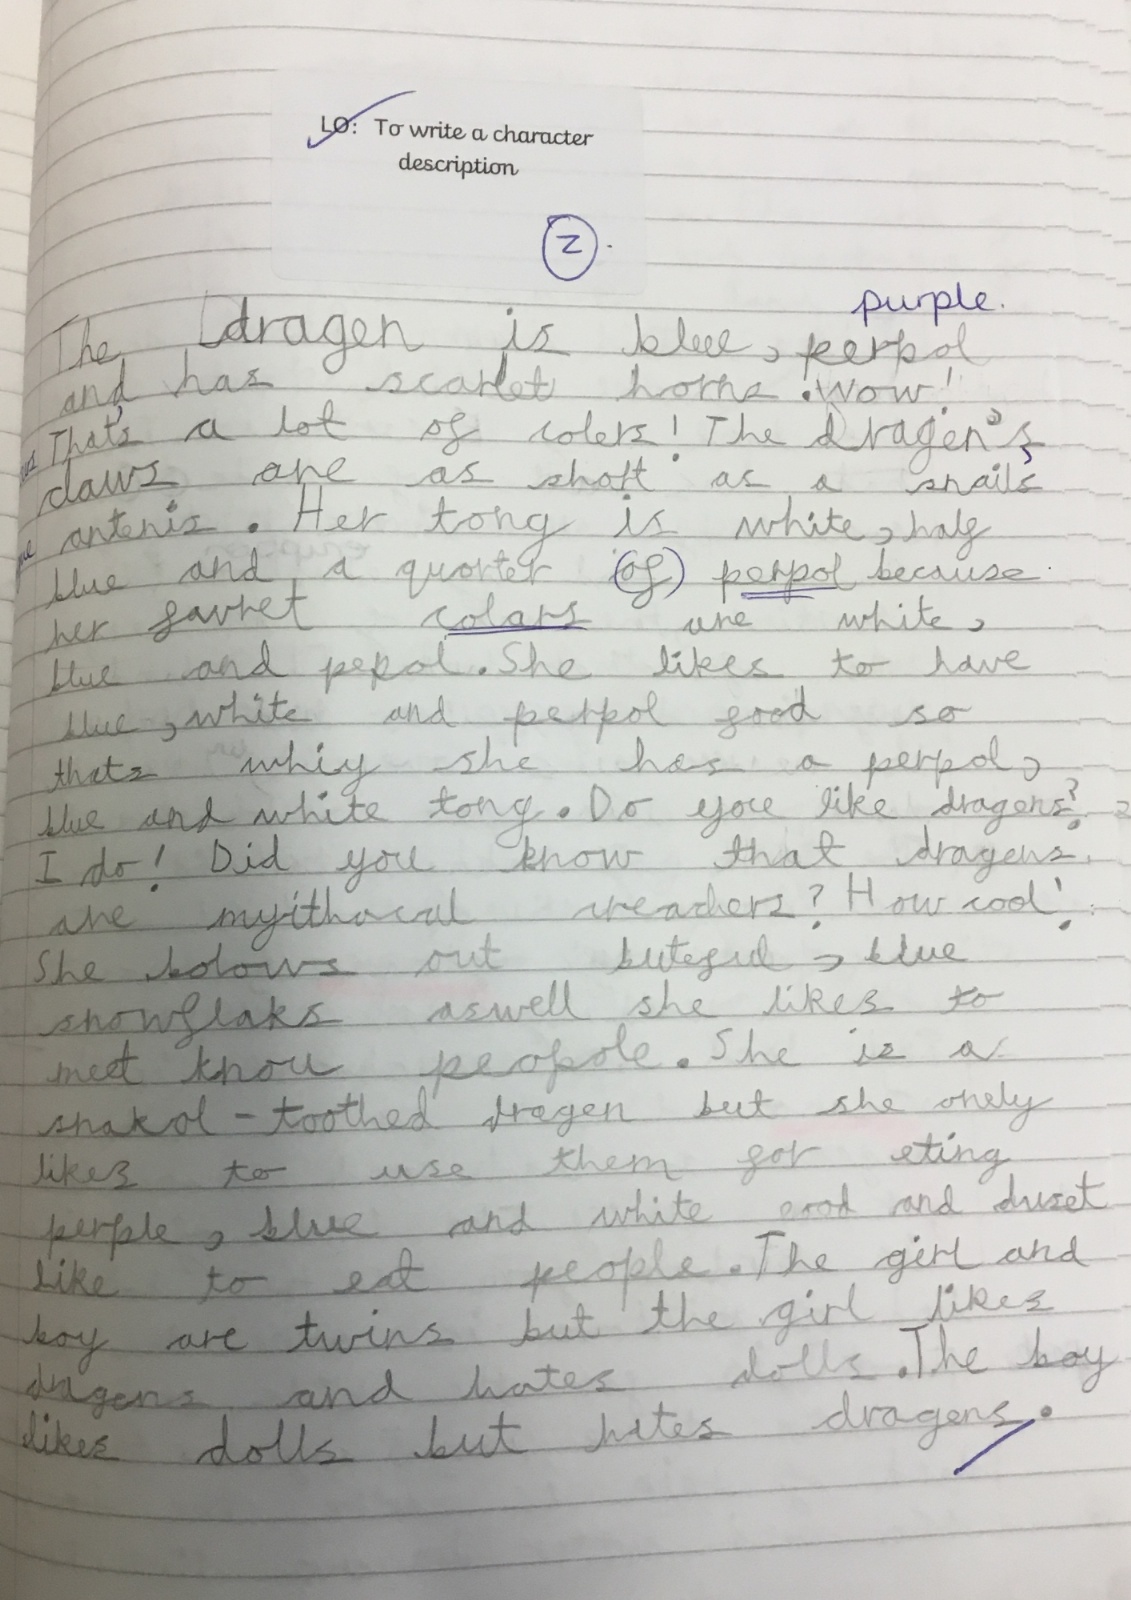 LO: To write a character
description
2
purple.
The dragen is blue, perpol
and has scarlet horns. Wow!
That's a lot of colers! The dragen's
claws are as shott as a snails
antenis. Her tong is white, half
blue and a quorter (of) perpol because
her favret colars are white,
blue and pepol. She likes to have
blue, white and perpol good so
thats whiy she has a perpol,
blue and white tong. Do you like dragens?
I do! Did you know that dragens
are myithacal creachers? How cool!
She bolows out butefud, blue
snowflaks aswell she likes to
meet knou peopole. She is a
snakol-toothed dragen but she onely
likes to use them for eting
perple, blue and white ood and duset
like to eat people. The girl and
boy are twins but the girl likes
dragens and hates dolls. The boy
likes dolls but hates dragens.